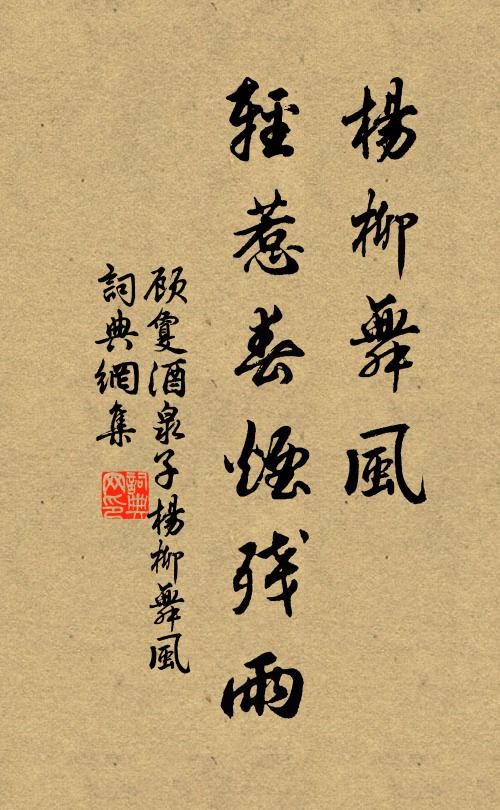 楊柳舞風
輕惹春煙殘雨
顾夐酒泉子楊柳舞風
詞典網集
詞典
网印